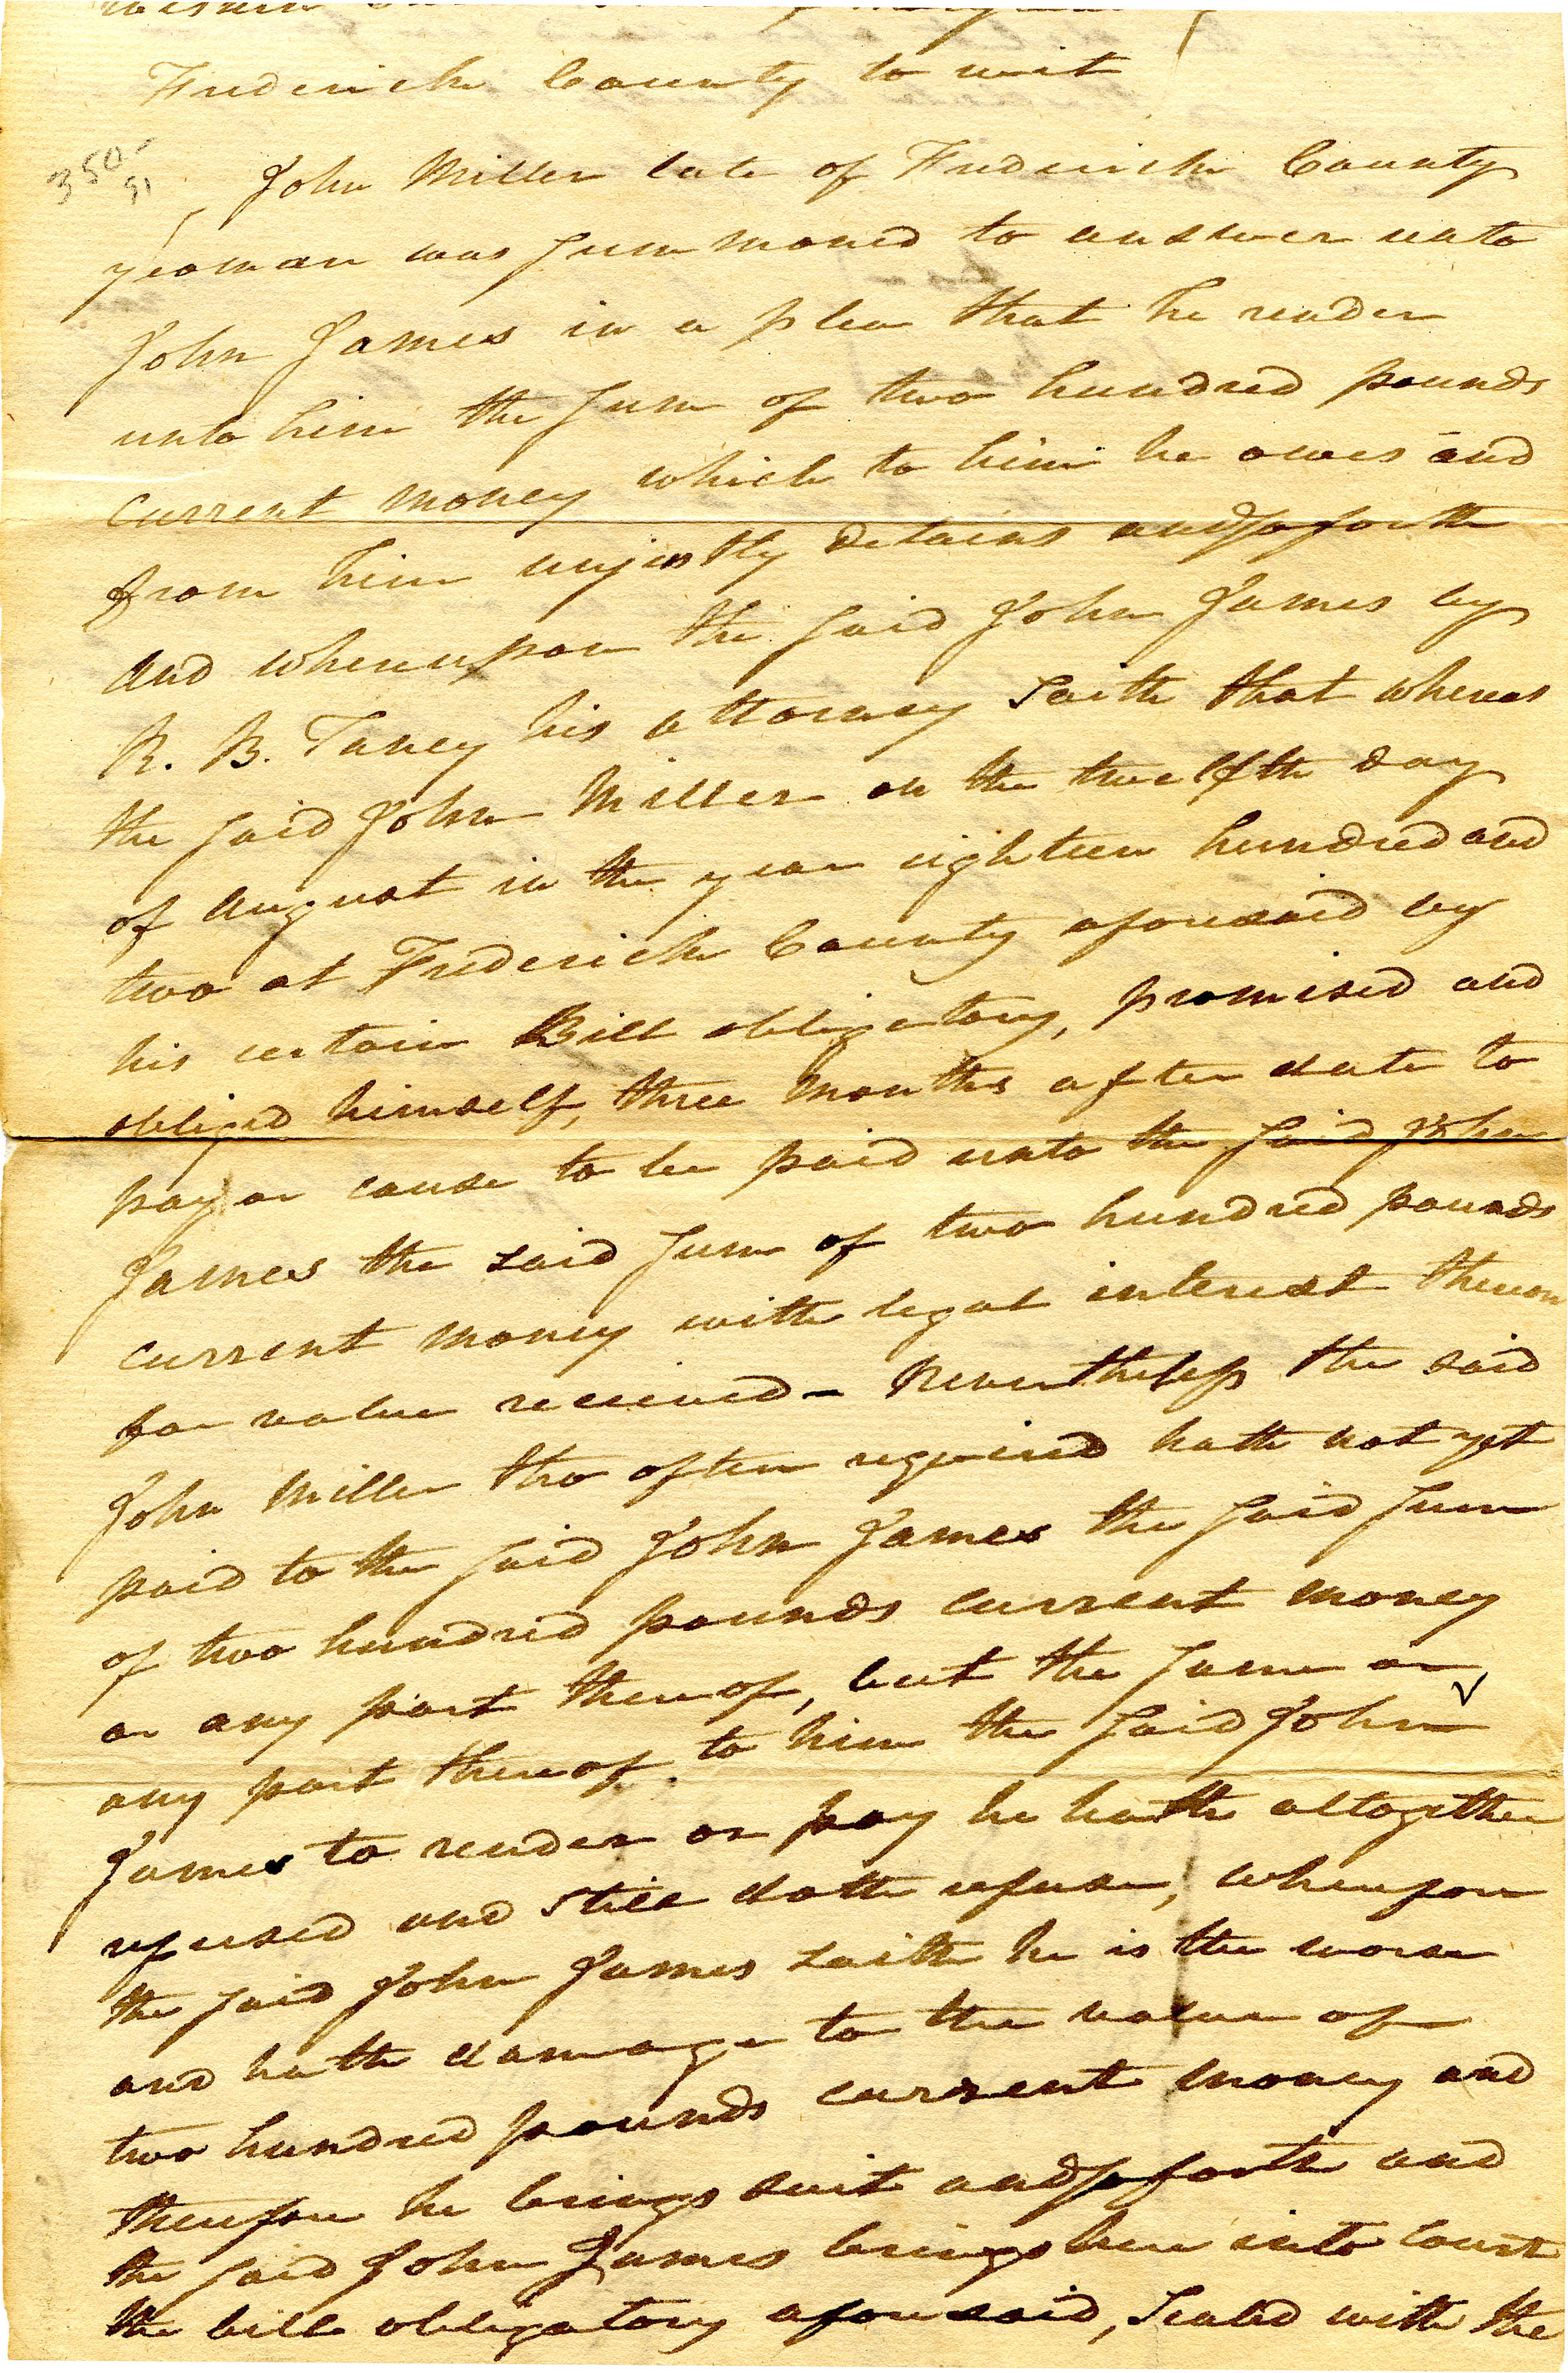 Frederick County to wit
350-
91
John Miller late of Frederick County
yeoman was summoned to answer unto
John James in a plea that he render
unto him the sum of two hundred pounds
current money which to him he owes and
from him unjustly detains and so forth
And whereupon the said John James by
R. B. Taney his attorney saith that whereas
the said John Miller on the twelfth day
of August in the year eighteen hundred and
two at Frederick County aforesaid by
his certain Bill obligatory, promised and
obliged himself, three months after date to
pay or cause to be paid unto the said John
James the said sum of two hundred pounds
current money with legal interest thereon
for value received - Nevertheless the said
John Miller tho often required hath not yet
paid to the said John James the said sum
of two hundred pounds current money
or any part thereof, but the same or
any part thereof to him the said John
James to render or pay he hath altogether
refused and still doth refuse, wherefore
the said John James saith he is the worse
and hath damage to the value of
two hundred pounds current money and
therefore he brings suit and so forth and
the said John James brings here into Court
the bill obligatory aforesaid, Sealed with the